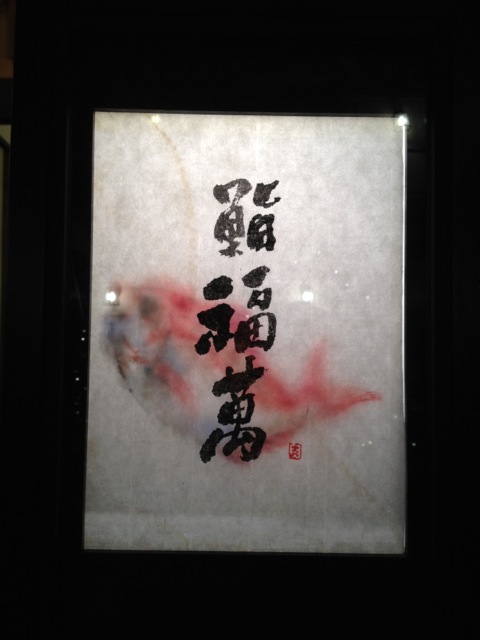 鮨福萬